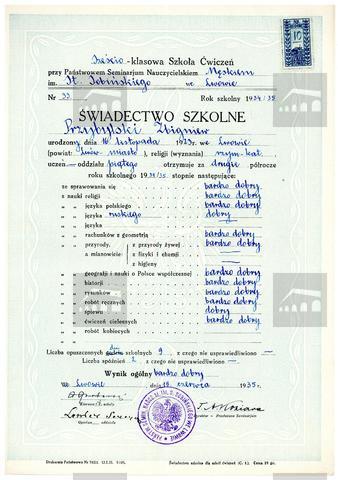 Sześcio-klasowa Szkoła Ćwiczeń
przy Państwowem Seminarjum Nauczycielskiem Męskiem
im. St. Sobińskiego we Lwowie
10
Nr 33 Rok szkolny 1934/35
ŚWIADECTWO SZKOLNE
Przybylski Zbigniew
urodzony dnia 16 listopada 1923 r. we Lwowie
(powiat: Lwów miasto), religji (wyznania) rzym-kat.
uczeń oddziału piątego otrzymuje za drugie półrocze
roku szkolnego 1934/35 stopnie następujące:
ze sprawowania się bardzo dobry
z nauki religji bardzo dobry
„ „ języka polskiego bardzo dobry
„ „ języka ruskiego dobry
„ „ języka
„ „ rachunków z geometrją bardzo dobry
„ „ przyrody, z przyrody żywej bardzo dobry
a mianowicie z fizyki i chemji —
z higjeny —
„ „ geografji i nauki o Polsce współczesnej bardzo dobry
„ „ historji bardzo dobry
„ „ rysunków bardzo dobry
„ „ robót ręcznych bardzo dobry
„ „ śpiewu dobry
„ „ ćwiczeń cielesnych bardzo dobry
„ „ robót kobiecych
Liczba opuszczonych dni szkolnych 9, z czego nie usprawiedliwiono —
Liczba spóźnień 2, z czego nie usprawiedliwiono —
Wynik ogólny bardzo dobry
we Lwowie dnia czerwca 1935 r.
Drukarnia Państwowa Nr
Świadectwo szkolne dla szkół ćwiczeń Cena 19 gr.